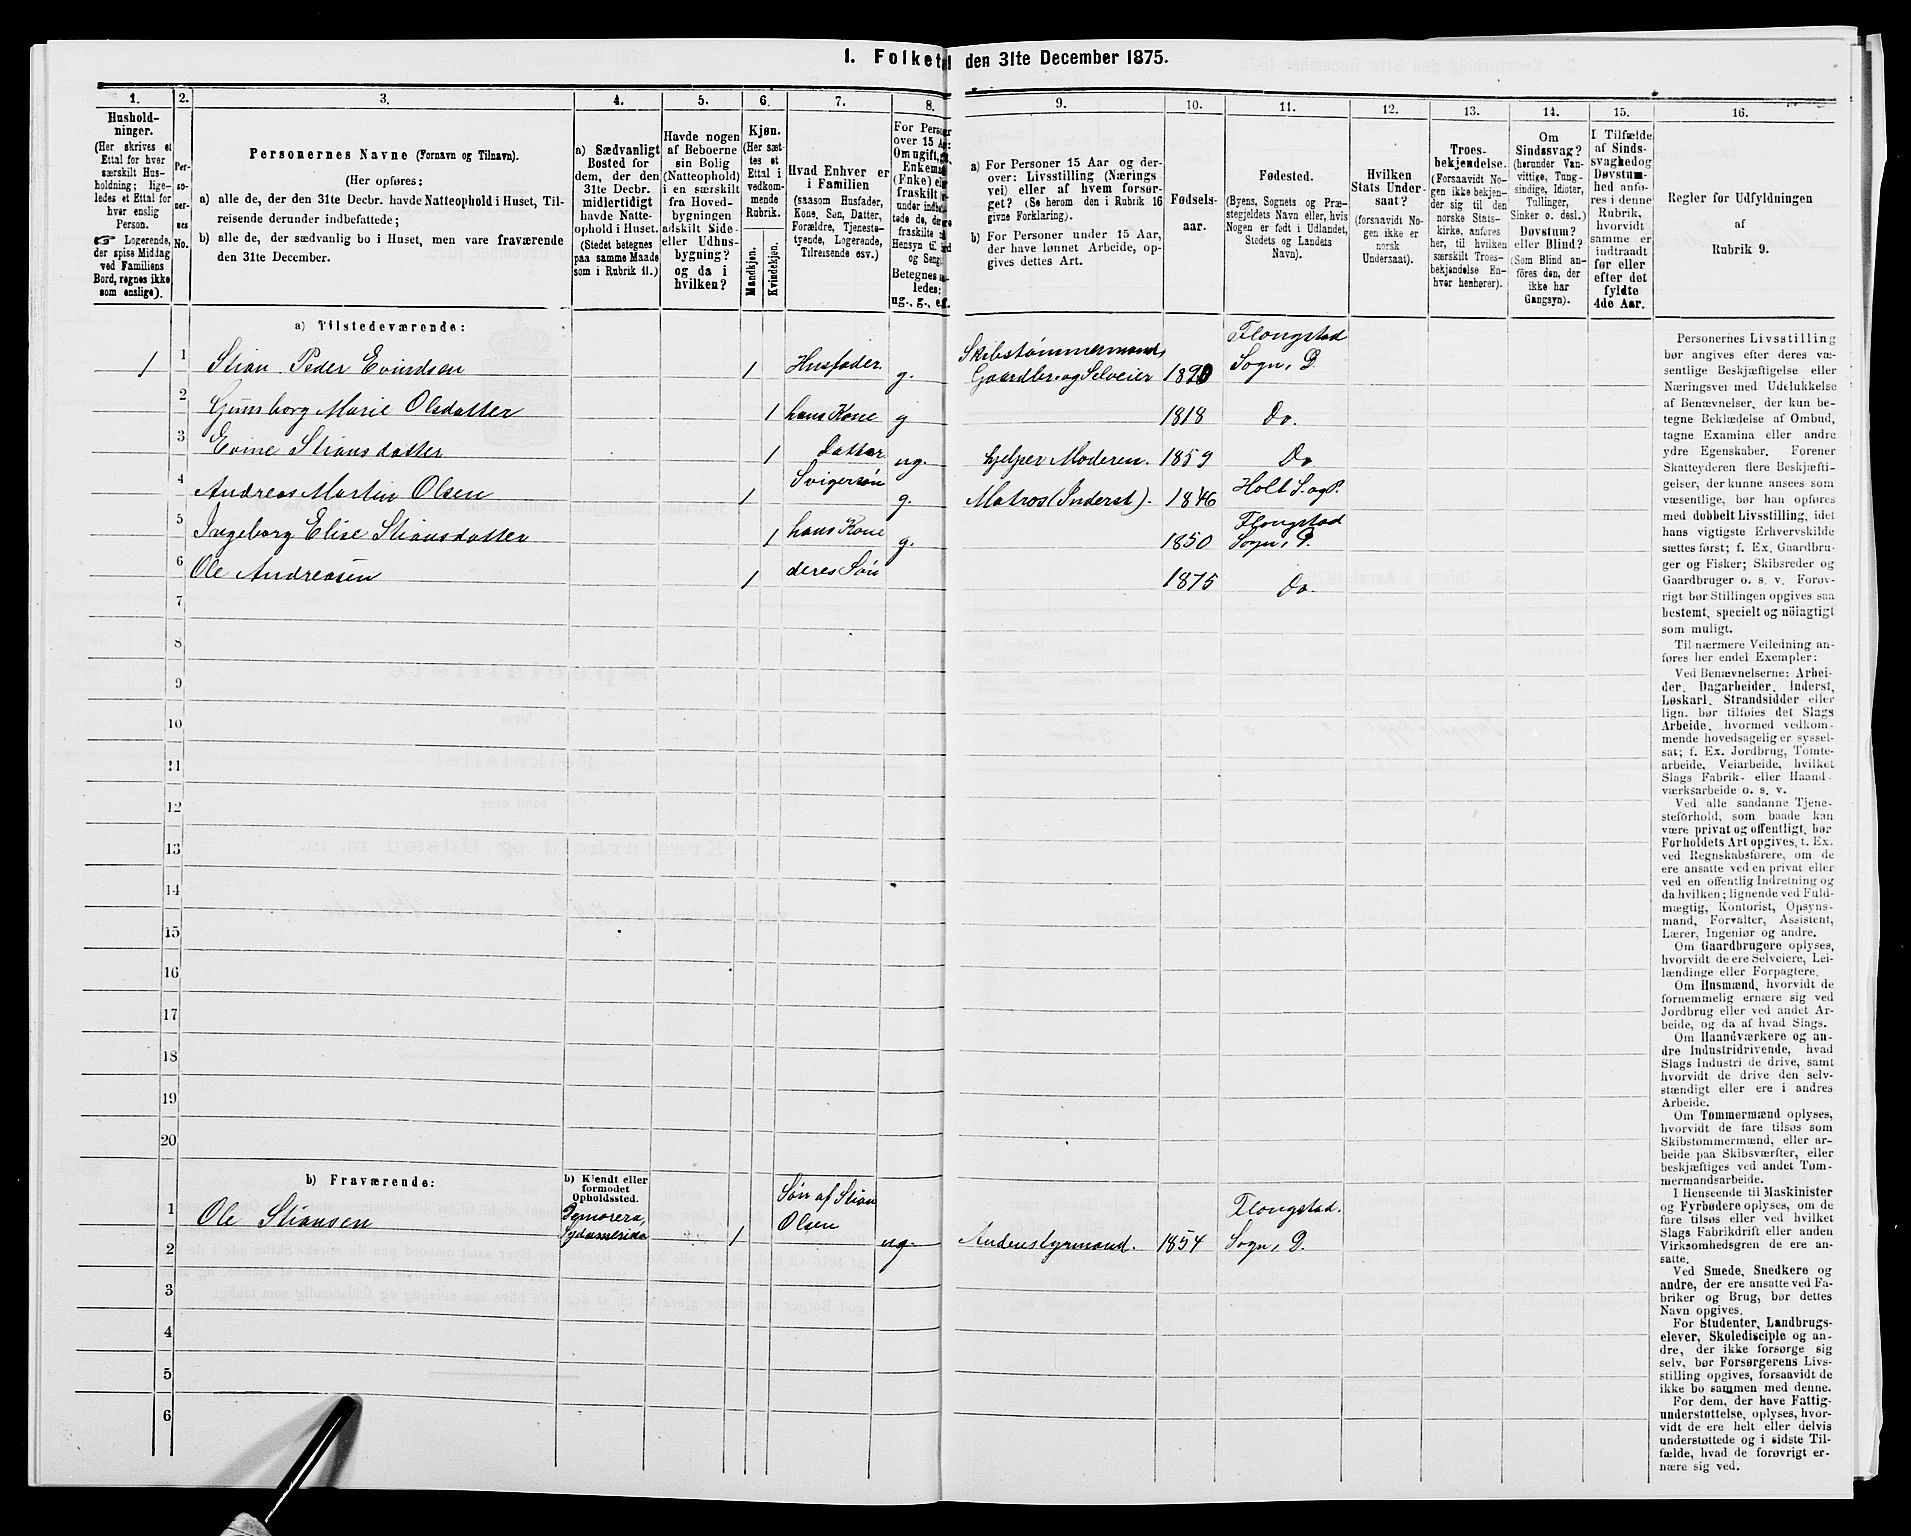 I. Folketal den 31te December 1875.
1.
Hushold-
ninger.
(Her skrives et
Ettal for hver
særskilt Hus-
holdning; lige-
ledes et Ettal for
hver enslig
Person.
Logerende,
der spise Middag
ved Familiens
Bord, regnes ikke
som enslige).
2.
Per-
so-
ner-
nes
No.
3.
Personernes Navne (Fornavn og Tilnavn).
(Her opføres:
a) alle de, der den 31te Decbr. havde Natteophold i Huset, Til-
reisende derunder indbefattede;
b) alle de, der sædvanlig bo i Huset, men vare fraværende
den 31te December.
4.
a) Sædvanligt
Bosted for
dem, der den
31te Decbr.
midlertidigt
havde Natte-
ophold i Huset.
(Stedet betegnes
paa samme Maade
som i Rubrik 11.)
5.
Havde nogen
af Beboerne
sin Bolig
(Natteophold)
i en særskilt
fra Hoved-
bygningen
adskilt Side-
eller Udhus-
bygning?
og da i
hvilken?
6.
Kjøn.
(Her sæt-
tes et
Ettal i
vedkom-
mende
Rubrik.
Mandkjøn.
Kvindekjøn.
7.
Hvad Enhver er
i Familien
(saasom Husfader,
Kone, Søn, Datter,
Forældre, Tjeneste-
tyende, Logerende,
Tilreisende osv.)
8.
For Personer
over 15 Aar:
Om ugift,
Enkemand
(Enke)
fraskilt
ledes:
ug., g.,
9.
a) For Personer 15 Aar og der-
over: Livsstilling (Nærings
vei) eller af hvem forsør-
get? (Se herom den i Rubrik 16
givne Forklaring).
b) For Personer under 15 Aar,
der have lønnet Arbeide, op-
gives dettes Art.
10.
Fødsels-
aar.
11.
Fødested.
(Byens, Sognets og Præ-
stegjeldets Navn eller, hvis
Nogen er født i Udlandet,
Stedets og Landets
Navn).
12.
Hvilken
Stats Under-
saat?
(forsaavidt No-
gen ikke er
norsk
Undersaat).
13.
Troes-
bekjendelse.
(Forsaavidt No-
gen ikke bekjen-
der sig til den
norske Stats-
kirke, anføres
her, til hvilken
særskilt Troes-
bekjendelse En-
hver henhører).
14.
Om
Sindssvag?
(herunder Van-
vittige, Tung-
sindige, Idioter,
Tullinger,
Sinker o. desl.)
Døvstum?
eller Blind?
(Som Blind an-
føres den, der
ikke har
Gangsyn).
15.
I Tilfælde
af Sinds-
svaghed og
Døvstum-
hed anfø-
res i denne
Rubrik,
hvorvidt
samme er
indtraadt
før eller
efter det
fyldte
4de Aar.
16.
Regler for Udfyldningen
af
Rubrik 9.
a) Tilstedeværende:
1 1 Stian Peder Evindsen 1 Husfader g. Skibstømmermand, Gaardbr. og Selveier 1820 Flougstad Sogn, P.
2 Gunborg Marie Olsdatter 1 hans Kone g 1818 Do.
3 Evine Stiansdatter 1 Datter ug. hjelper Moderen. 1859 Do
4 Andreas Martin Olsen 1 Svigersøn g. Matros (Inderst). 1846 Holt S. og P.
5 Ingeborg Elise Stiansdatter 1 hans Kone g. 1850 Flougstad Sogn, P.
6 Ole Andreasen 1 deres Søn 1875 Do.
7
8
9
10
11
12
13
14
15
16
17
18
19
20
b) Fraværende:
b) Kjendt eller
formodet
Opholdssted.
1 Ole Stiansen Demorera, Sydamerika 1 Søn af Stian Olsen ug. Andenstyrmand. 1854 Flougstad. Sogn, P.
2
3
4
5
6
Personernes Livsstilling
bør angives efter deres væ-
sentlige Beskjæftigelse eller
Næringsvei med Udelukkelse
af Benævnelser, der kun be-
tegne Beklædelse af Ombud,
tagne Examina eller andre
ydre Egenskaber. Forener
Skatteyderen flere Beskjæfti-
gelser, der kunne ansees som
væsentlige, bør han opføres
med dobbelt Livsstilling, idet
hans vigtigste Erhvervskilde
sættes først; f. Ex. Gaardbru-
ger og Fisker; Skibsreder og
Gaardbruger o. s. v. Forøv-
rigt bør Stillingen opgives saa
bestemt, specielt og nöiagtigt
som muligt.
Til nærmere Veiledning an-
føres her endel Exempler:
Ved Benævnelserne: Arbei-
der, Dagarbeider, Inderst,
Løskarl, Strandsidder eller
lign. bør tilføies det Slags
Arbeide, hvormed vedkom-
mende hovedsagelig er syssel-
sat; f. Ex. Jordbrug, Tomte-
arbeide, Veiarbeide, hvilket
Slags Fabrik- eller Haand-
værksarbeide o. s. v.
Ved alle saadanne Tjene-
steforhold, som baade kan
være privat og offentligt, bør
Forholdets Art opgives, t. Ex.
ved Regnskabsførere, om de
ere ansatte ved en privat eller
ved en offentlig Indretning og
da hvilken; lignende ved Fuld-
mægtig, Kontorist, Opsyns-
mand, Forvalter, Assistent,
Lærer, Ingeniør og andre.
Om Gaardbrugere oplyses,
hvorvidt de ere Selveiere, Lei-
lændinge eller Forpagtere.
Om Husmænd, hvorvidt de
fornemmelig ernære sig ved
Jordbrug eller ved andet Ar-
beide, og da af hvad Slags.
Om Haandværkere og an-
dre Industridrivende, hvad
Slags Industri de drive, samt
hvorvidt de drive den selv-
stændigt eller ere i andres
Arbeide.
Om Tømmermænd oplyses,
hvorvidt de fare tilsøs som
Skibstømmermænd, eller ar-
beide paa Skibsværfter, eller
beskjæftiges ved andet Tøm-
mermandsarbeide.
I Henseende til Maskinister
og Fyrbødere oplyses, om de
fare tilsøs eller ved hvilket
Slags Fabrikdrift eller anden
Virksomhedsgren de ere an-
satte.
Ved Smede, Snedkere og
andre, der ere ansatte ved Fa-
briker og Brug, bør dettes
Navn opgives.
For Studenter, Landbrugs-
elever, Skoledisciple og an-
dre, der ikke forsørge sig
selv, bør Forsørgerens Livs-
stilling opgives, forsaavidt de
ikke bo sammen med denne.
For dem, der have Fattig-
understøttelse, oplyses, hvor-
vidt de ere helt eller delvis
understøttede og i sidste Til-
fælde, hvad de forøvrigt er-
nære sig ved.